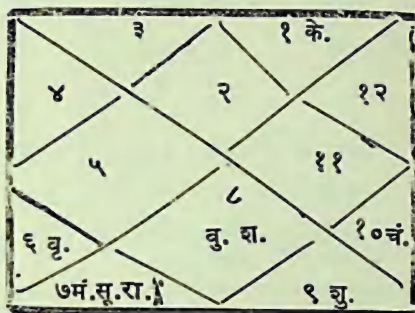 ३ १ के.
४ २ १२
५ ११
८
६ वृ. वु. श. १० चं.
७ मं. सू. रा.
९ शु.